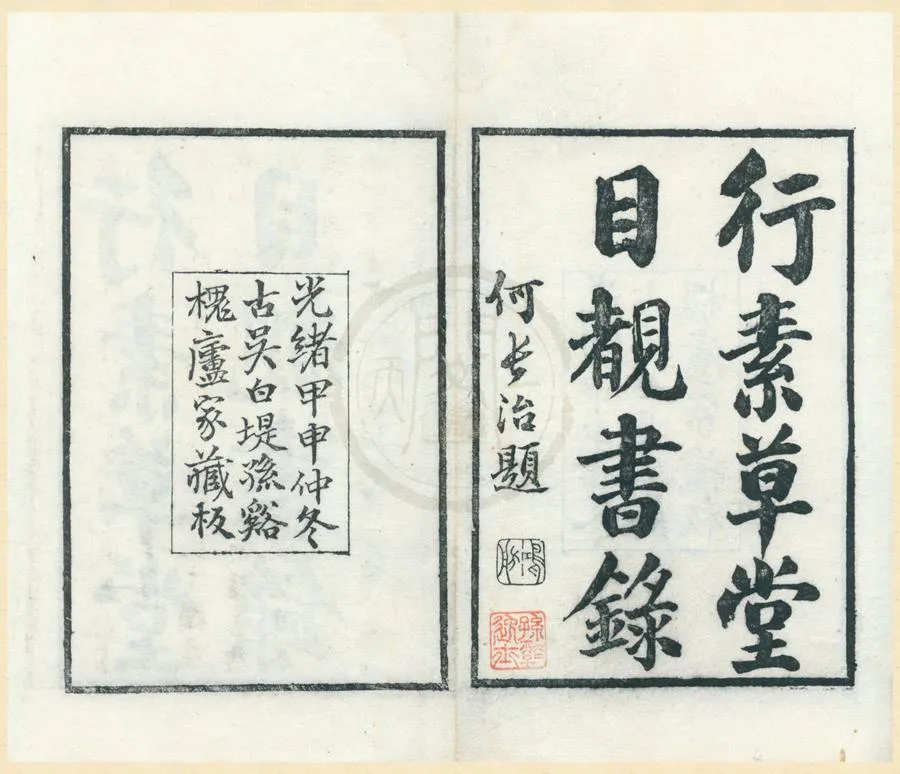 行素草堂
目覩書錄
何长治題
光緒甲申仲冬
古吳白堤孫谿
槐廬家藏板